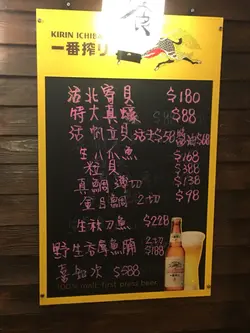 食
KIRIN ICHIBA
一番搾り
活北寄貝 $180
特大真蠔 $88
活帆立貝 $58
生八爪魚 $168
粒貝 $388
真鯛 薄切 $138
金目鯛 2切 $98
生秋刀魚 $228
野生吞拿魚腩 2切 $188
喜知次 $588
100% malt first press beer